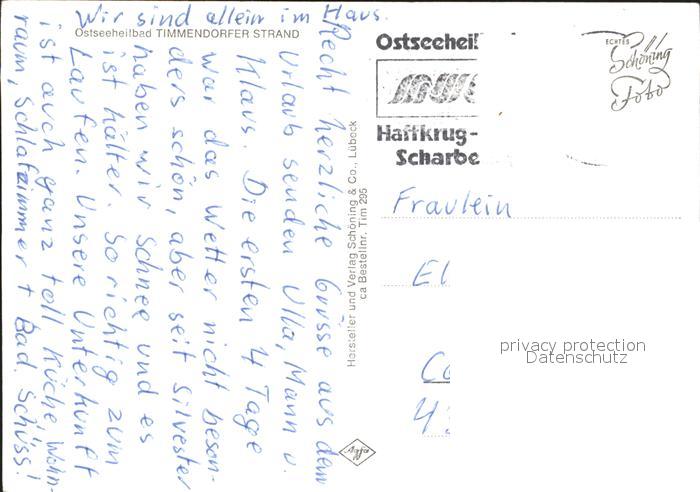 Wir sind allein im Haus.
Ostseeheilbad TIMMENDORFER STRAND
Recht herzliche Grüsse aus dem
Urlaub senden Ulla, Mann u.
Klaus. Die ersten 4 Tage
war das Wetter nicht beson-
ders schön, aber seit Silvester
haben wir Schnee und es
ist kälter. So richtig zum
Laufen. Unsere Unterkunft
ist auch ganz toll, Küche, Wohn-
raum, Schlafzimmer + Bad. Schüss!
Hersteller und Verlag Schöning & Co., Lübeck
ca Bestellnr. Tim 295
Ostseeheil
Haffkrug-
Scharbe
ECHTES
Schöning
Foto
Fräulein
El
Co
privacy protection
Datenschutz
Agfa